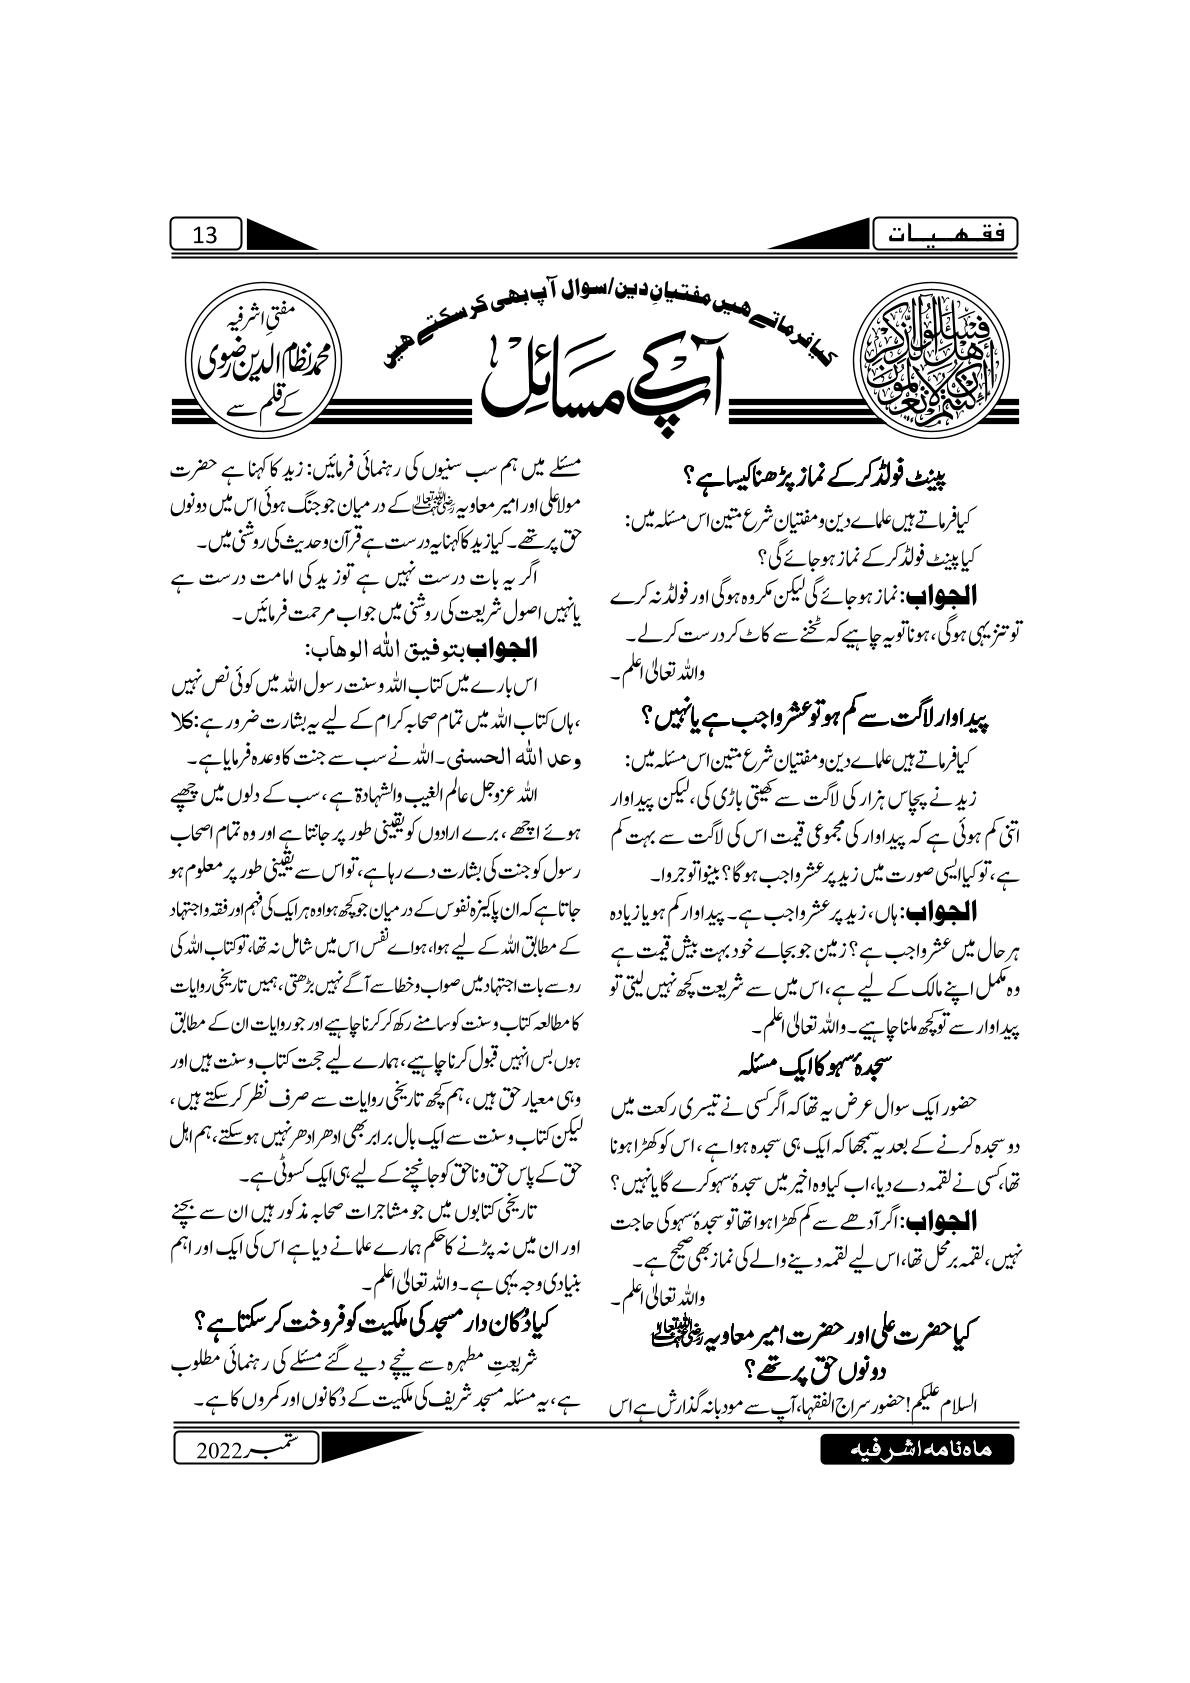 فقہیات
13
کیا فرماتے ہیں مفتیانِ دین/سوال آپ بھی کر سکتے ہیں
فَسْـَٔلُوْۤا اَهْلَ الذِّكْرِ اِنْ كُنْتُمْ لَا تَعْلَمُوْنَ
آپ کے مسائل
مفتیِ اشرفیہ
محمد نظام الدین رضوی
کے قلم سے
پینٹ فولڈ کر کے نماز پڑھنا کیسا ہے؟
کیا فرماتے ہیں علماے دین و مفتیان شرع متین اس مسئلہ میں:
کیا پینٹ فولڈ کر کے نماز ہو جائے گی؟
الجواب: نماز ہو جائے گی لیکن مکروہ ہوگی اور فولڈ نہ کرے
تو تنزیہی ہوگی، ہونا تو یہ چاہیے کہ ٹخنے سے کاٹ کر درست کر لے۔
واللہ تعالیٰ اعلم۔
پیداوار لاگت سے کم ہو تو عشر واجب ہے یا نہیں؟
کیا فرماتے ہیں علماے دین و مفتیان شرع متین اس مسئلہ میں:
زید نے پچاس ہزار کی لاگت سے کھیتی باڑی کی، لیکن پیداوار
اتنی کم ہوئی ہے کہ پیداوار کی مجموعی قیمت اس کی لاگت سے بہت کم
ہے، تو کیا ایسی صورت میں زید پر عشر واجب ہوگا؟ بینوا توجروا۔
الجواب: ہاں، زید پر عشر واجب ہے۔ پیداوار کم ہو یا زیادہ
ہر حال میں عشر واجب ہے؟ زمین جو بجاے خود بہت بیش قیمت ہے
وہ مکمل اپنے مالک کے لیے ہے، اس میں سے شریعت کچھ نہیں لیتی تو
پیداوار سے تو کچھ ملنا چاہیے۔ واللہ تعالیٰ اعلم۔
سجدۂ سہو کا ایک مسئلہ
حضور ایک سوال عرض یہ تھا کہ اگر کسی نے تیسری رکعت میں
دو سجدہ کرنے کے بعد یہ سمجھا کہ ایک ہی سجدہ ہوا ہے، اس کو کھڑا ہونا
تھا، کسی نے لقمہ دے دیا، اب کیا وہ اخیر میں سجدۂ سہو کرے گا یا نہیں؟
الجواب: اگر آدھے سے کم کھڑا ہوا تھا تو سجدۂ سہو کی حاجت
نہیں، لقمہ بر محل تھا، اس لیے لقمہ دینے والے کی نماز بھی صحیح ہے۔
واللہ تعالیٰ اعلم۔
کیا حضرت علی اور حضرت امیر معاویہ رضی اللہ تعالیٰ عنہما
دونوں حق پر تھے؟
السلام علیکم! حضور سراج الفقہا، آپ سے مودبانہ گذارش ہے اس
مسئلے میں ہم سب سنیوں کی رہنمائی فرمائیں: زید کا کہنا ہے حضرت
مولا علی اور امیر معاویہ رضی اللہ تعالیٰ عنہما کے درمیان جو جنگ ہوئی اس میں دونوں
حق پر تھے۔ کیا زید کا کہنا یہ درست ہے قرآن و حدیث کی روشنی میں۔
اگر یہ بات درست نہیں ہے تو زید کی امامت درست ہے
یا نہیں اصول شریعت کی روشنی میں جواب مرحمت فرمائیں۔
الجواب بتوفيق اللہ الوهاب:
اس بارے میں کتاب اللہ و سنت رسول اللہ میں کوئی نص نہیں
، ہاں کتاب اللہ میں تمام صحابہ کرام کے لیے یہ بشارت ضرور ہے: کلا
وعد اللہ الحسنی۔ اللہ نے سب سے جنت کا وعدہ فرمایا ہے۔
اللہ عزوجل عالم الغیب والشہادة ہے، سب کے دلوں میں چھپے
ہوئے اچھے، برے ارادوں کو یقینی طور پر جانتا ہے اور وہ تمام اصحاب
رسول کو جنت کی بشارت دے رہا ہے، تو اس سے یقینی طور پر معلوم ہو
جاتا ہے کہ ان پاکیزہ نفوس کے درمیان جو کچھ ہوا وہ ہر ایک کی فہم اور فقہ و اجتہاد
کے مطابق اللہ کے لیے ہوا، ہواے نفس اس میں شامل نہ تھا، تو کتاب اللہ کی
رو سے بات اجتہاد میں صواب و خطا سے آگے نہیں بڑھتی، ہمیں تاریخی روایات
کا مطالعہ کتاب و سنت کو سامنے رکھ کر کرنا چاہیے اور جو روایات ان کے مطابق
ہوں بس انہیں قبول کرنا چاہیے، ہمارے لیے حجت کتاب و سنت ہیں اور
وہی معیار حق ہیں، ہم کچھ تاریخی روایات سے صرف نظر کر سکتے ہیں،
لیکن کتاب و سنت سے ایک بال برابر بھی ادھر ادھر نہیں ہو سکتے، ہم اہل
حق کے پاس حق و ناحق کو جانچنے کے لیے ہی ایک کسوٹی ہے۔
تاریخی کتابوں میں جو مشاجرات صحابہ مذکور ہیں ان سے بچنے
اور ان میں نہ پڑنے کا حکم ہمارے علما نے دیا ہے اس کی ایک اور اہم
بنیادی وجہ یہی ہے۔ واللہ تعالیٰ اعلم۔
کیا دُکان دار مسجد کی ملکیت کو فروخت کر سکتا ہے؟
شریعتِ مطہرہ سے نیچے دیے گئے مسئلے کی رہنمائی مطلوب
ہے، یہ مسئلہ مسجد شریف کی ملکیت کے دُکانوں اور کمروں کا ہے۔
ماہ نامہ اشرفیہ
ستمبر 2022